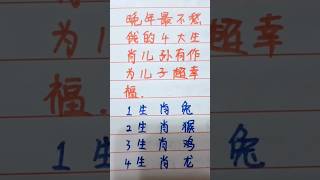 晚年最不愁
钱的4大生
肖儿孙有作
为儿子超幸
福.
1生肖兔
2生肖猴
3生肖鸡
4生肖龙